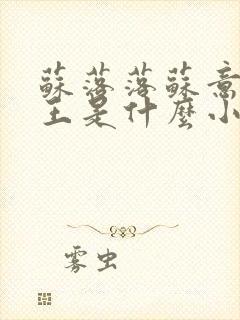 蘇落落蘇意
王是什麼小
雾虫